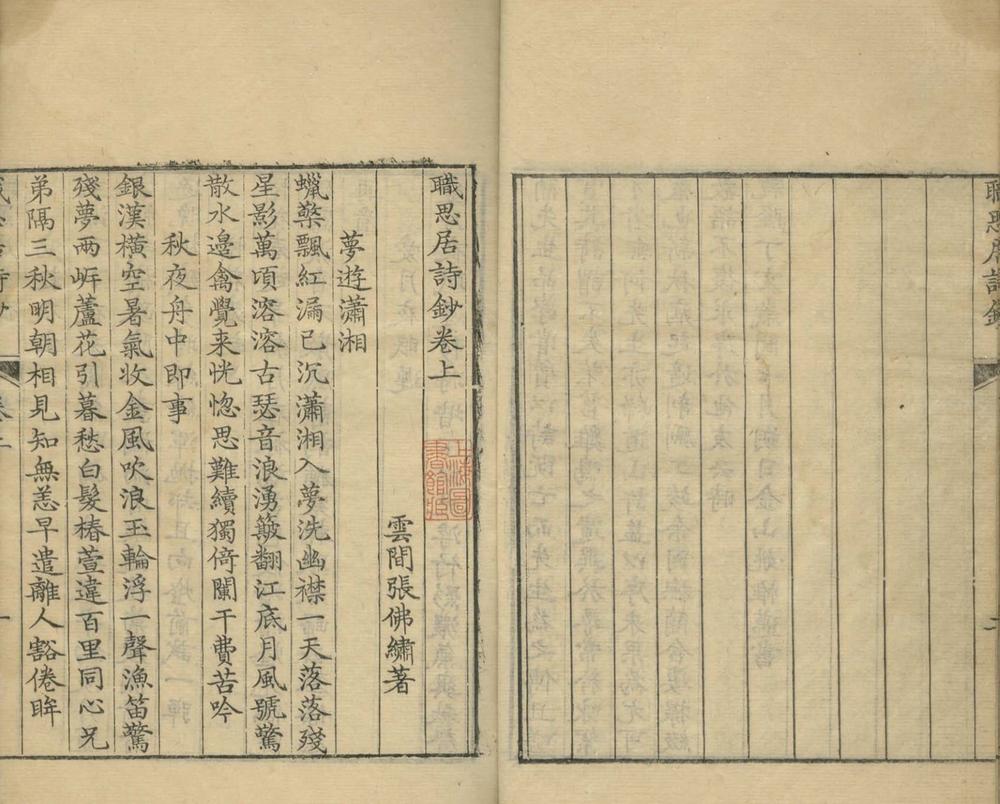 職思居詩鈔
職思居詩鈔卷上
上海圖書館藏
雲間張佛繡著
夢遊瀟湘
蠟檠飄紅漏已沉瀟湘入夢洗幽襟一天落落殘
星影萬頃溶溶古瑟音浪湧簸翻江底月風號驚
散水邊禽覺来恍惚思難續獨倚闌干費苦吟
秋夜舟中即事
銀漢橫空暑氣收金風吹浪玉輪浮一聲漁笛驚
殘夢兩岍蘆花引暮愁白髮椿萱違百里同心兄
弟隔三秋明朝相見知無恙早遣離人豁倦眸